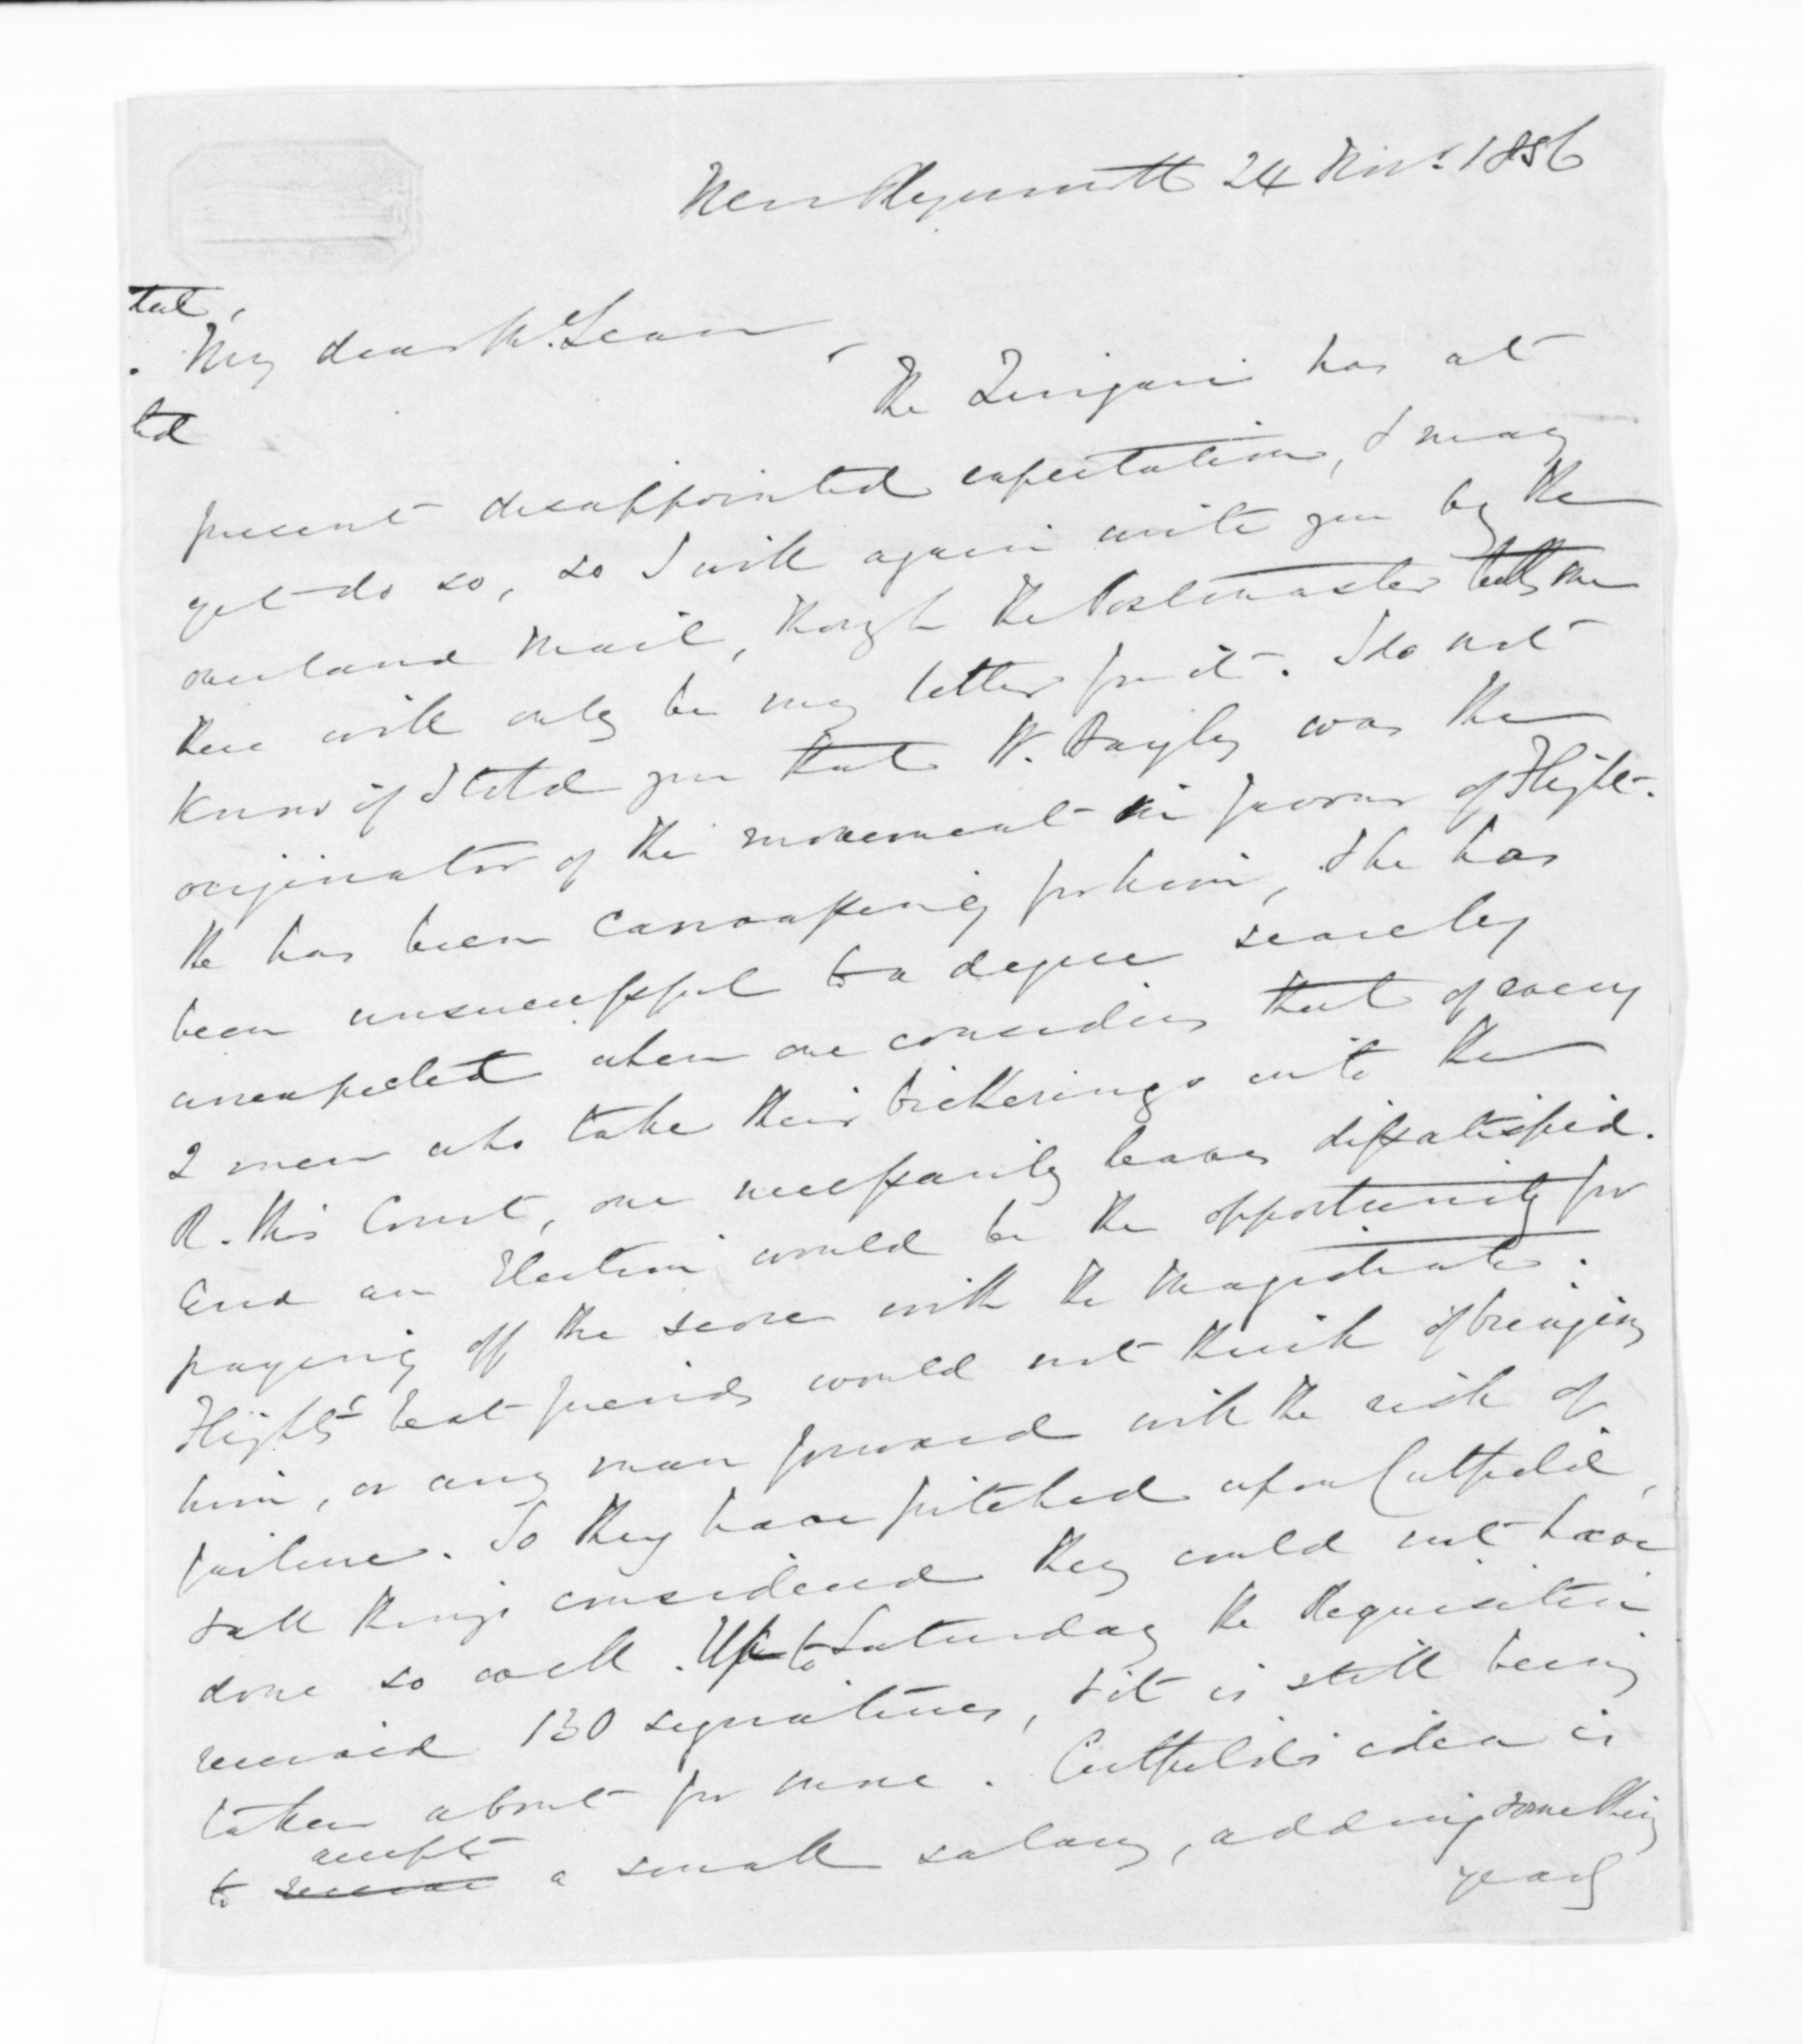 New Plymouth 24 Novr. 1856
tal,
My dear McLean,
ted
The Zingari has at
present disappointed expectation, & may
yet do so, so I will again write you by the
overland mail, though the Postmaster tells me
there will only be my letter for it. I do not
know if I told you that W. Bayly was the
originator of the movement in favour of Flight.
He has been canvassing for him, & he has
been unsuccessful to a degree scarcely
unexpected when one considers that of every
2 men who take their bickerings into the
R. M's Court, one necessarily leaves dissatisfied.
And an Election would be the opportunity for
paying off the score with the Magistrate.
Flight's best friends would not think of bringing
him, or any man forward with the risk of
failure. So they have pitched upon Cutfield,
& all things considered they could not have
done so well. Up to Saturday the Requisition
received 130 signatures, & it is still being
taken about for more. Cutfield's idea is
to receive accept a small salary, adding something
yearly